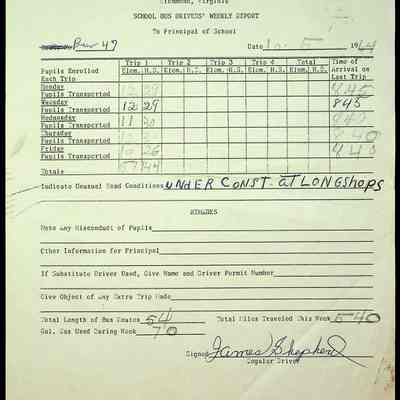 Richmond, Virginia
SCHOOL BUS DRIVERS' WEEKLY REPORT
To Principal of School
Bus 47 Date 10-5 1964
Trip 1 Trip 2 Trip 3 Trip 4 Total Time of
Pupils Enrolled Elem. H.S. Elem. H.S. Elem. H.S. Elem. H.S. Elem. H.S. Arrival on
Each Trip Last Trip
Monday
Pupils Transported 12 29 845
Tuesday
Pupils Transported 12 29 845
Wednesday
Pupils Transported 11 30 840
Thursday
Pupils Transported 840
Friday
Pupils Transported 10 26 840
Totals
Indicate Unusual Road Conditions UNDER CONST. at LONGSHOPS
REMARKS
Note Any Misconduct of Pupils
Other Information for Principal
If Substitute Driver Used, Give Name and Driver Permit Number
Give Object of Any Extra Trip Made
Total Length of Bus Routes 54 Total Miles Traveled This Week 540
Gal. Gas Used During Week 70
Signed James Shepherd
Regular Driver